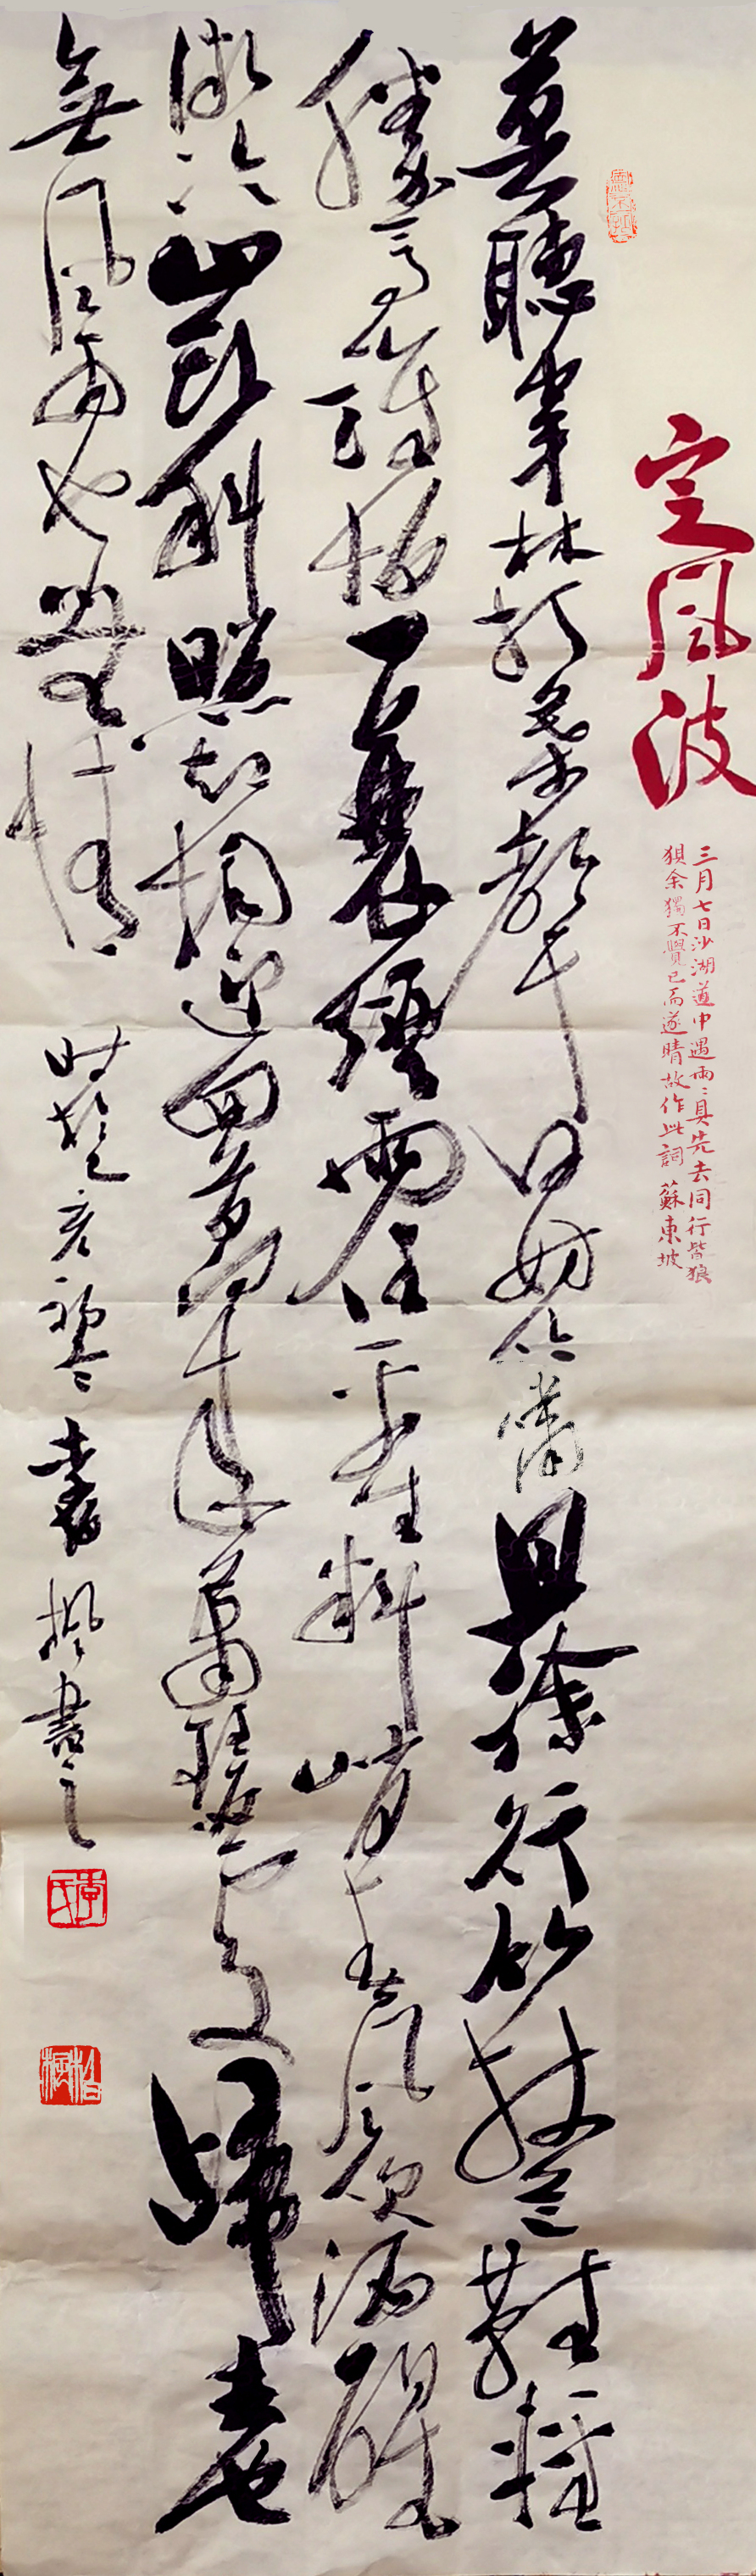 定風波
三月七日沙湖道中遇雨〻具先去同行皆狼
狽余獨不覺已而遂晴故作此詞 蘇東坡
莫聽穿林打葉聲何妨吟嘯且徐行竹杖芒鞋輕
勝馬誰怕一蓑煙雨任平生料峭春風吹酒醒
微冷山頭斜照卻相迎回首向來蕭瑟處歸去也
無風雨也無晴 時於己亥初冬 李柏楓書之
李氏
柏楓